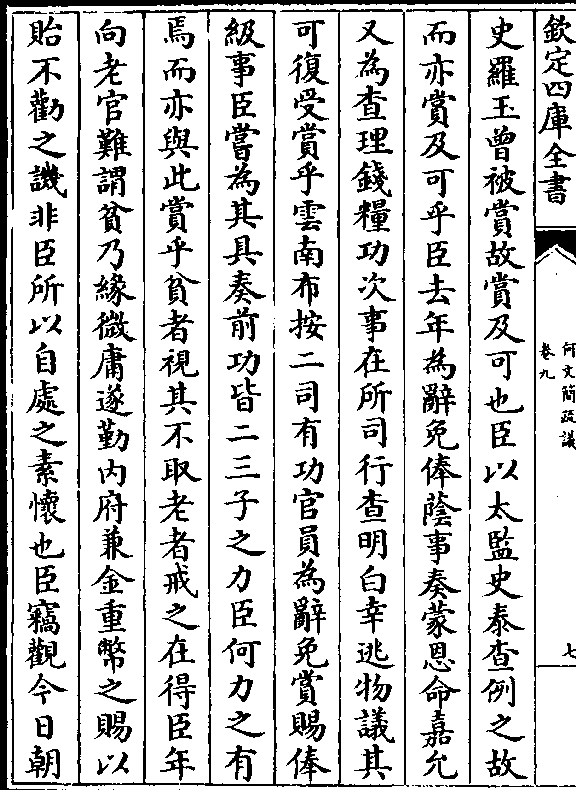 欽定四庫全書
何文簡疏議
卷九
七
史羅玉曾被賞故賞及可也臣以太監史泰查例之故
而亦賞及可乎臣去年為辭免俸蔭事奏蒙恩命嘉允
又為查理錢糧功次事在所司行查明白幸逃物議其
可復受賞乎雲南布按二司有功官員為辭免賞賜俸
級事臣嘗為其具奏前功皆二三子之力臣何力之有
焉而亦與此賞乎貧者視其不取老者戒之在得臣年
向老官難謂貧乃緣微庸遂勤內府兼金重幣之賜以
貽不勸之譏非臣所以自處之素懷也臣竊觀今日朝